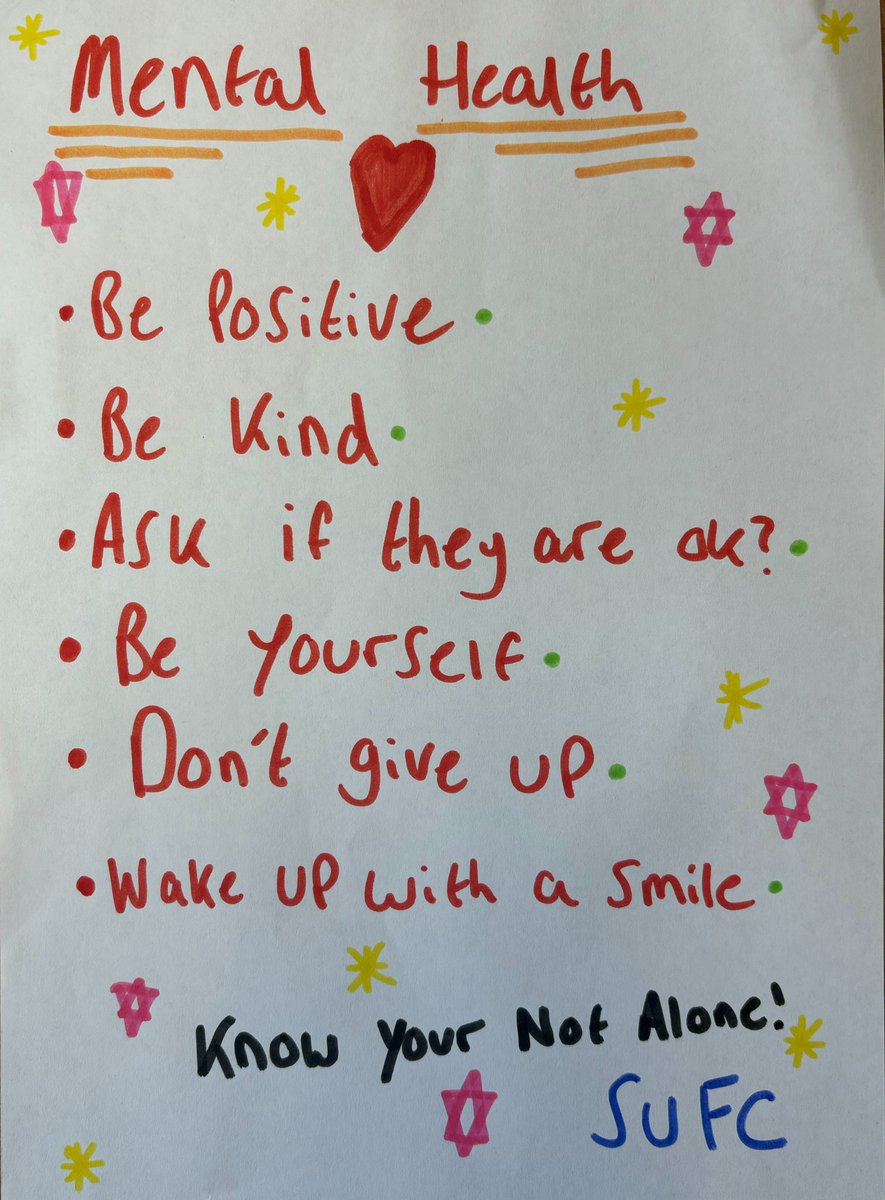 Mental Health
• Be Positive •
• Be Kind •
• Ask if they are ok? •
• Be Yourself •
• Don't give up •
• Wake up with a smile •
Know Your Not Alone!
SUFC